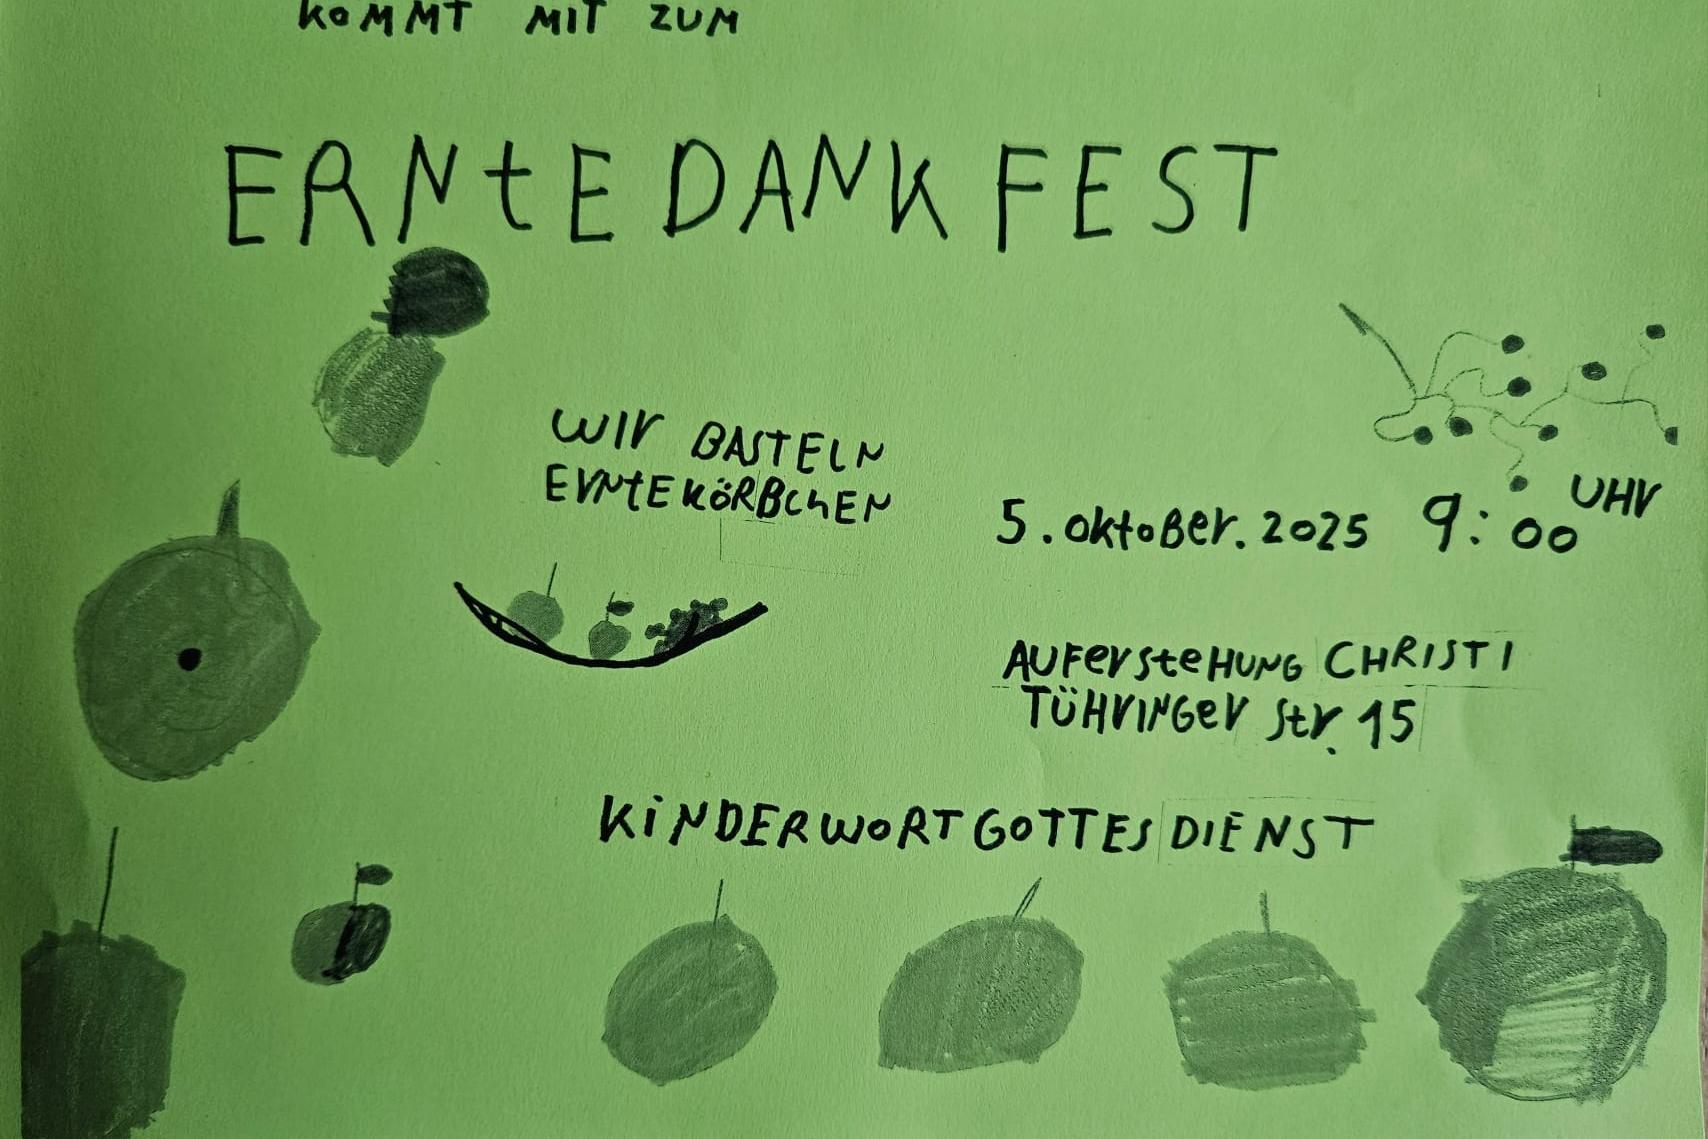 KOMMT MIT ZUM
ERNtEDANKFEST
WIr BASTELN
ErNtEKÖRBChEN
5. oktoBer. 2025 9:00 UHr
AUFerSteHUNG CHRISTI
TÜHrINGer Str. 15
KiNDERWORTGOTTESDIENST